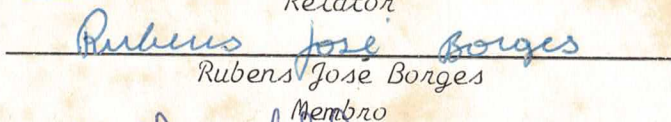 Relator
Rubens José Borges
Rubens José Borges
Membro